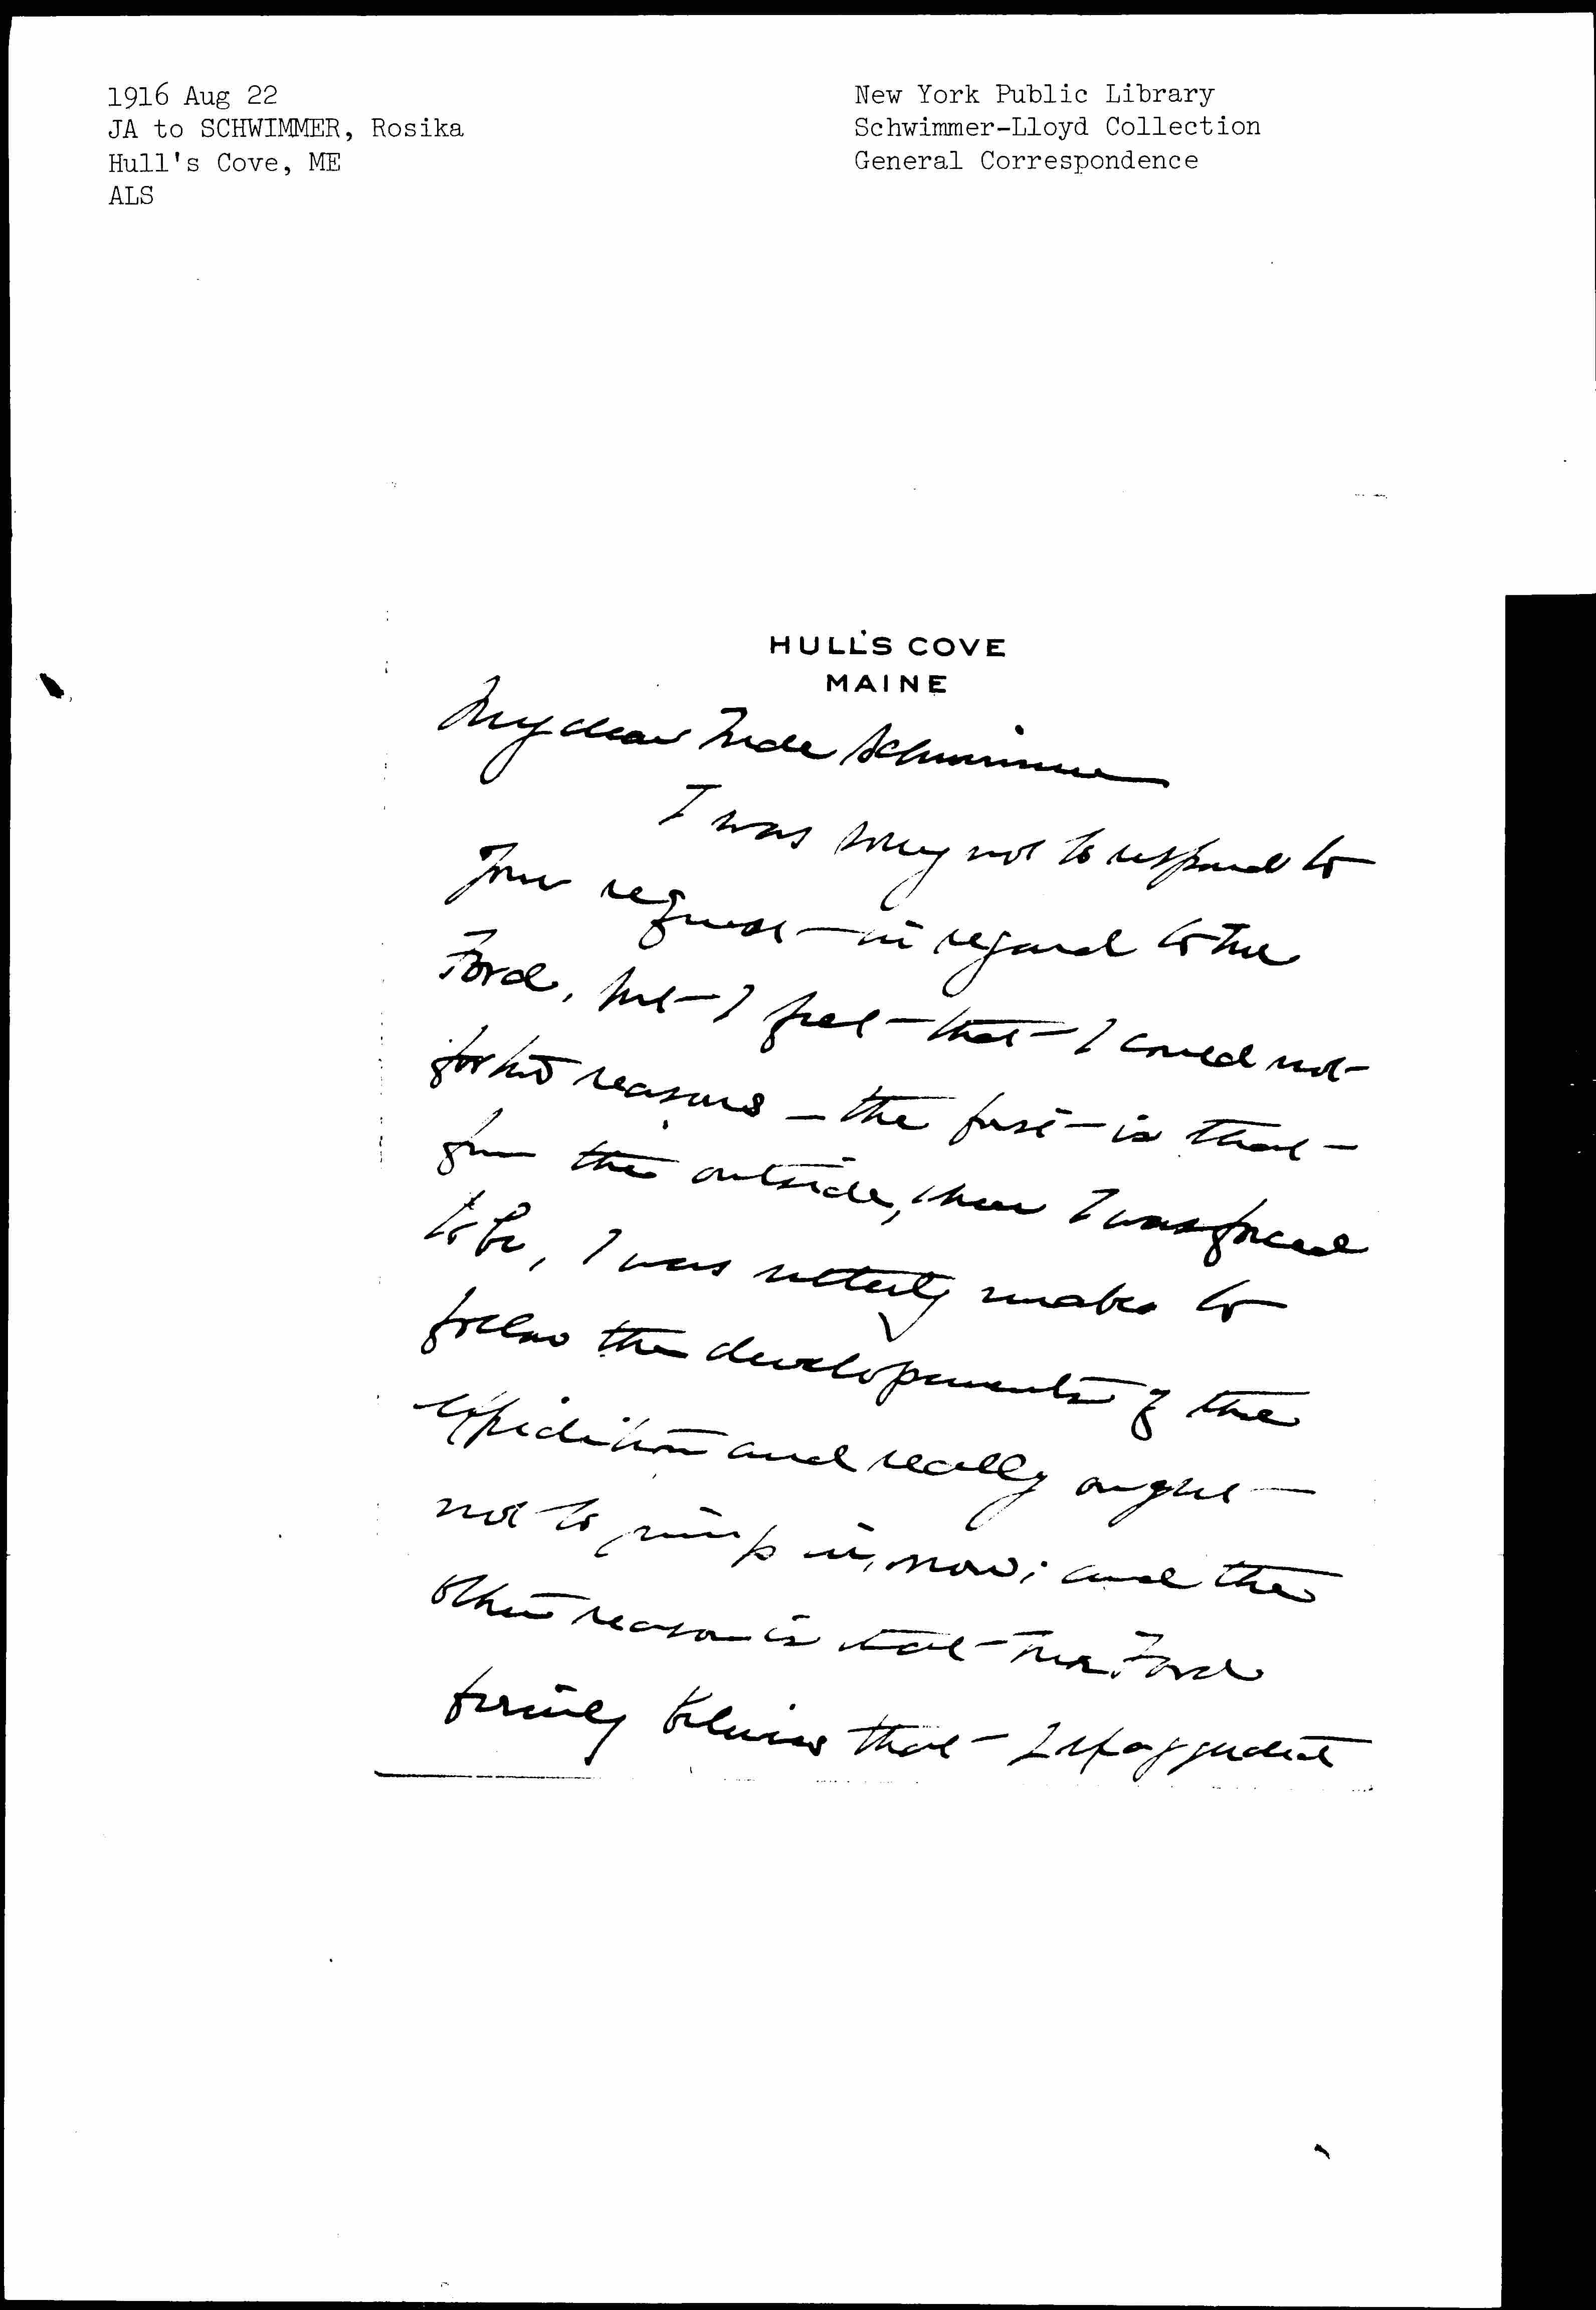 1916 Aug 22
JA to SCHWIMMER, Rosika
Hull's Cove, ME
ALS
New York Public Library
Schwimmer-Lloyd Collection
General Correspondence
HULL'S COVE
MAINE
My dear Mde Schwimmer
I was sorry not to respond to
your request in regard to Mr
Ford, but I feel that I could not
for two reasons – the first is that
from the outside, where I was forced
to be, I was utterly unable to
follow the developments of the
expedition and really ought
not to jump in, now; and the
other reason is that Mr Ford
firmly believes that I repudiated